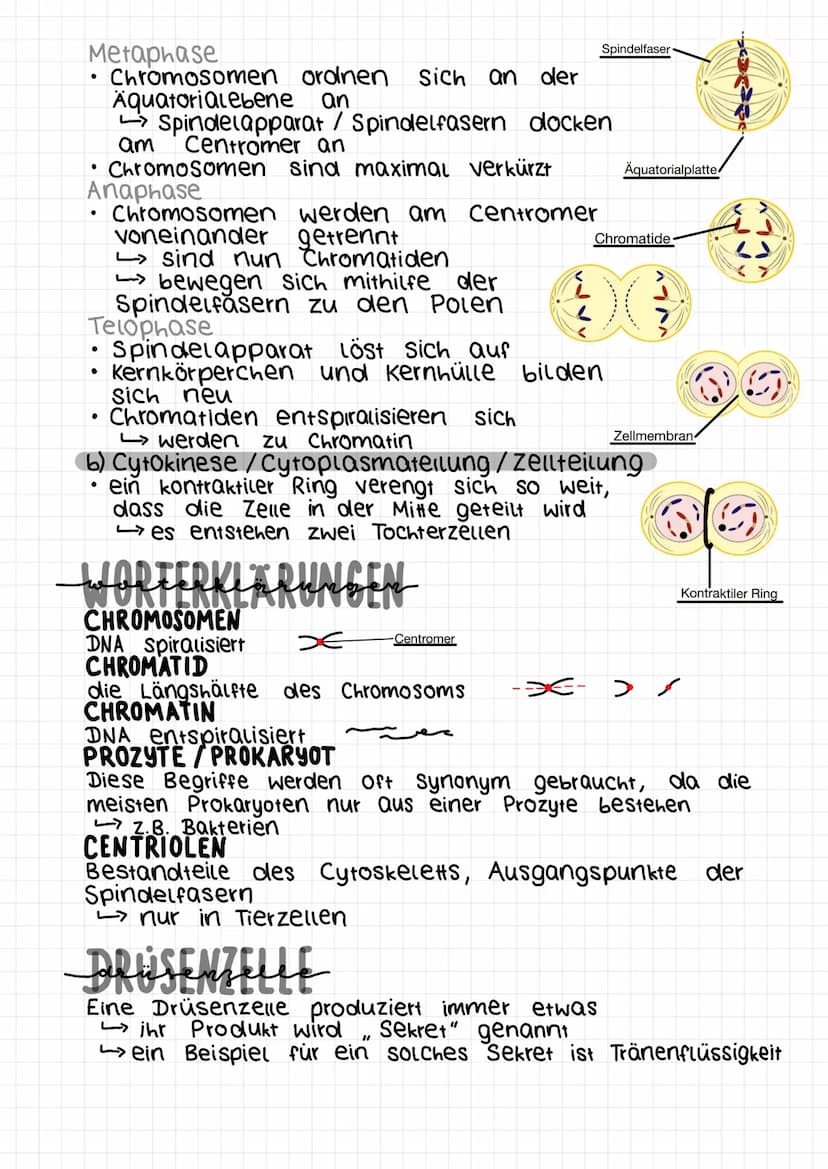 Metaphase
Spindelfaser
• Chromosomen ordnen sich an der
Äquatorialebene an
↳ Spindelapparat / Spindelfasern docken
am Centromer an
• Chromosomen sind maximal verkürzt
Äquatorialplatte
Anaphase
• Chromosomen werden am Centromer
voneinander getrennt
Chromatide
↳ sind nun Chromatiden
↳ bewegen sich mithilfe der
Spindelfasern zu den Polen
Telophase
• Spindelapparat löst sich auf
• Kernkörperchen und Kernhülle bilden
sich neu
• Chromatiden entspiralisieren sich
↳ werden zu Chromatin
Zellmembran
b) Cytokinese / Cytoplasmateilung / Zellteilung
• ein kontraktiler Ring verengt sich so weit,
dass die Zelle in der Mitte geteilt wird
↳ es entstehen zwei Tochterzellen
Kontraktiler Ring
WORTERKLÄRUNGEN
worterklärungen
CHROMOSOMEN
DNA spiralisiert
Centromer
CHROMATID
die Längshälfte des Chromosoms
CHROMATIN
DNA entspiralisiert
PROZYTE / PROKARYOT
Diese Begriffe werden oft synonym gebraucht, da die
meisten Prokaryoten nur aus einer Prozyte bestehen
↳ z.B. Bakterien
CENTRIOLEN
Bestandteile des Cytoskeletts, Ausgangspunkte der
Spindelfasern
↳ nur in Tierzellen
DRÜSENZELLE
drüsenzelle
Eine Drüsenzelle produziert immer etwas
↳ ihr Produkt wird „Sekret“ genannt
↳ ein Beispiel für ein solches Sekret ist Tränenflüssigkeit